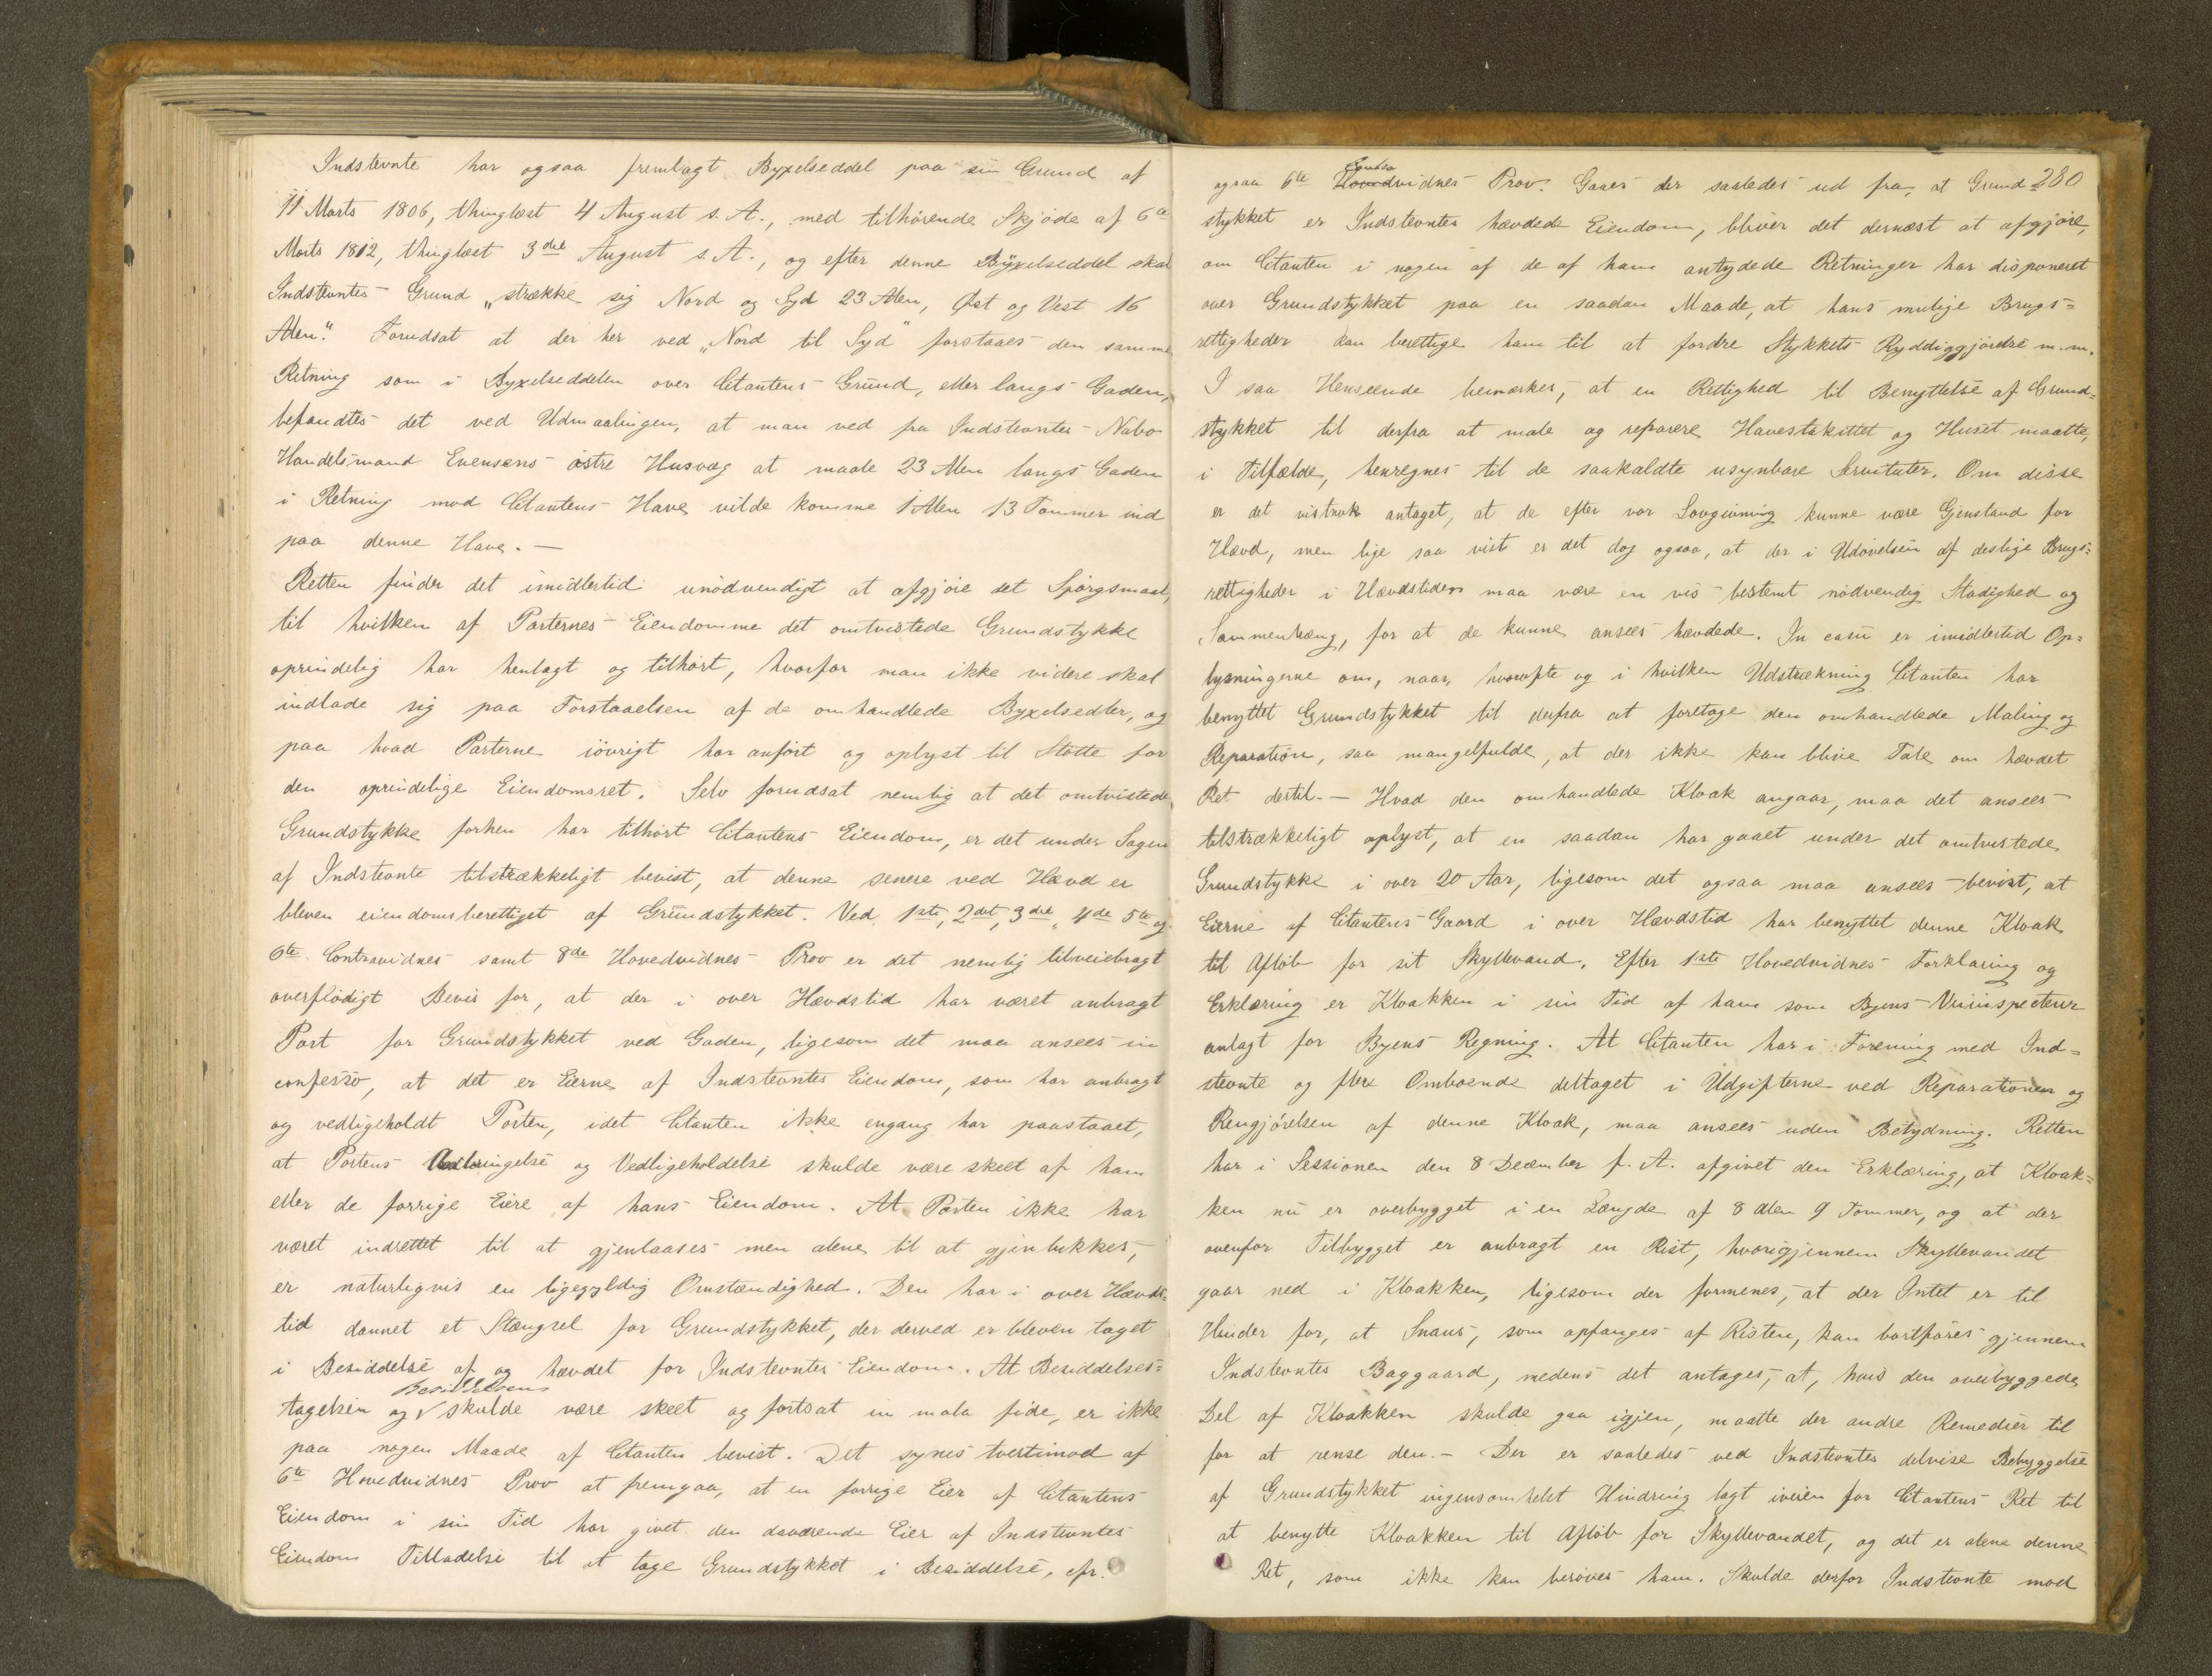 Indstevnte har ogsaa fremlagt Byxelseddel paa sin Grund af
11 Marts 1806, thinglæst 4 August s. A., med tilhørende Skjøde af 6te
Marts 1812, thinglæst 3die August s. A., og efter denne Byxelseddel skal
Indstevntes Grund „strække sig Nord og Syd 23 Alen, Øst og Vest 16
Alen". Forudsat at der her ved „Nord til Syd" forstaaes den samme
Retning som i Byxelseddelen over Citantens Grund, eller langs Gaden,
befandtes det ved Udmaalingen, at man ved fra Indstevntes Nabo
Handelsmand Evensens østre Husvæg at maale 23 Alen langs Gaden
i Retning mod Citantens Have vilde komme 1 Alen 13 Tommer ind
paa denne Have. —
Retten finder det imidlertid unødvendigt at afgjøre det Spørgsmaal,
til hvilken af Parternes Eiendomme det omtvistede Grundstykke
oprindelig har henlagt og tilhørt, hvorfor man ikke videre skal
indlade sig paa Forstaaelsen af de omhandlede Byxelsedler, og
paa hvad Parterne iøvrigt har anført og oplyst til Støtte for
den oprindelige Eiendomsret. Selv forudsat nemlig at det omtvistede
Grundstykke forhen har tilhørt Citantens Eiendom, er det under Sagen
af Indstevnte tilstrækkeligt bevist, at denne senere ved Hævd er
bleven eiendomsberettiget af Grundstykket. Ved 1ste, 2det, 3die, 4de 5te og
6te Contravidnes samt 8de Hovedvidnes Prov er det nemlig tilveiebragt
overflødigt Bevis for, at der i over Hævdstid har været anbragt
Port for Grundstykket ved Gaden, ligesom det maa ansees in
confesso, at det er Eierne af Indstevntes Eiendom, som har anbragt
og vedligeholdt Porten, idet Citanten ikke engang har paastaaet,
at Portens Anbringelse og Vedligeholdelse skulde være skeet af ham
eller de forrige Eiere af hans Eiendom. At Porten ikke har
været indrettet til at gjenlaases men alene til at gjenlukkes,
er naturligvis en ligegyldig Omstændighed. Den har i over Hævds-
tid dannet et Stængsel for Grundstykket, der derved er bleven taget
i Besiddelse af og hævdet for Indstevntes Eiendom. At Besiddelses-
Besiddelsens
tagelsen og √ skulde være skeet og fortsat in mala fide, er ikke
paa nogen Maade af Citanten bevist. Det synes tvertimod af
6te Hovedvidnes Prov at fremgaa, at en forrige Eier af Citantens
Eiendom i sin Tid har givet den daværende Eier af Indstevntes
Eiendom Tilladelse til at tage Grundstykket i Besiddelse, cfr.
280
Contra
ogsaa 6te Hovedvidnes Prov. Gaaes der saaledes ud fra, at Grund-
stykket er Indstevntes hævdede Eiendom, bliver det dernæst at afgjøre,
om Citanten i nogen af de af ham antydede Retninger har disponeret
over Grundstykket paa en saadan Maade, at hans mulige Brugs-
rettigheder kan berettige ham til at fordre Stykkets Ryddiggjørelse m.m.
I saa Henseende bemærkes, at en Rettighed til Benyttelse af Grund-
stykket til derfra at male og reparere Havestakittet og Huset maatte,
i Tilfælde, henregnes til de saakaldte usynbare Servituter. Om disse
er det vistnok antaget, at de efter vor Lovgivning kunne være Gjenstand for
Hævd, men lige saa vist er det dog ogsaa, at der i Udøvelsen af deslige Brugs-
rettigheder i Hævdstiden maa være en vis bestemt nødvendig Stadighed og
Sammenhæng, for at de kunne ansees hævdede. In casu er imidlertid Op-
lysningerne om, naar, hvorofte og i hvilken Udstrækning Citanten har
benyttet Grundstykket til derfra at foretage den omhandlede Maling og
Reparation, saa mangelfulde, at der ikke kan blive Tale om hævdet
Ret dertil. — Hvad den omhandlede Kloak angaar, maa det ansees
tilstrækkeligt oplyst, at en saadan har gaaet under det omtvistede
Grundstykke i over 20 Aar, ligesom det ogsaa maa ansees bevist, at
Eierne af Citantens Gaard i over Hævdstid har benyttet denne Kloak
til Afløb for sit Skyllevand. Efter 1ste Hovedvidnes Forklaring og
Erklæring er Kloakken i sin Tid af ham som Byens Veiinspecteur
anlagt for Byens Regning. At Citanten har i Forening med Ind-
stevnte og flere Omboende deltaget i Udgifterne ved Reparationen og
Rengjørelsen af denne Kloak, maa ansees uden Betydning. Retten
har i Sessionen den 8 December f. A. afgivet den Erklæring, at Kloak-
ken nu er overbygget i en Længde af 8 Alen 9 Tommer, og at der
ovenfor Tilbygget er anbragt en Rist, hvorigjennem Skyllevandet
gaar ned i Kloakken, ligesom der formenes, at der Intet er til
Hinder for, at Snaus, som opfanges af Risten, kan bortføres gjennem
Indstevntes Baggaard, medens det antages, at, hvis den overbyggede
Del af Kloakken skulde gaa igjen, maatte der andre Remedier til
for at rense den. — Der er saaledes ved Indstevntes delvise Bebyggelse
af Grundstykket ingensomhelst Hindring lagt iveien for Citantens Ret til
at benytte Kloakken til Afløb for Skyllevandet, og det er alene denne
Ret, som ikke kan berøves ham. Skulde derfor Indstevnte mod